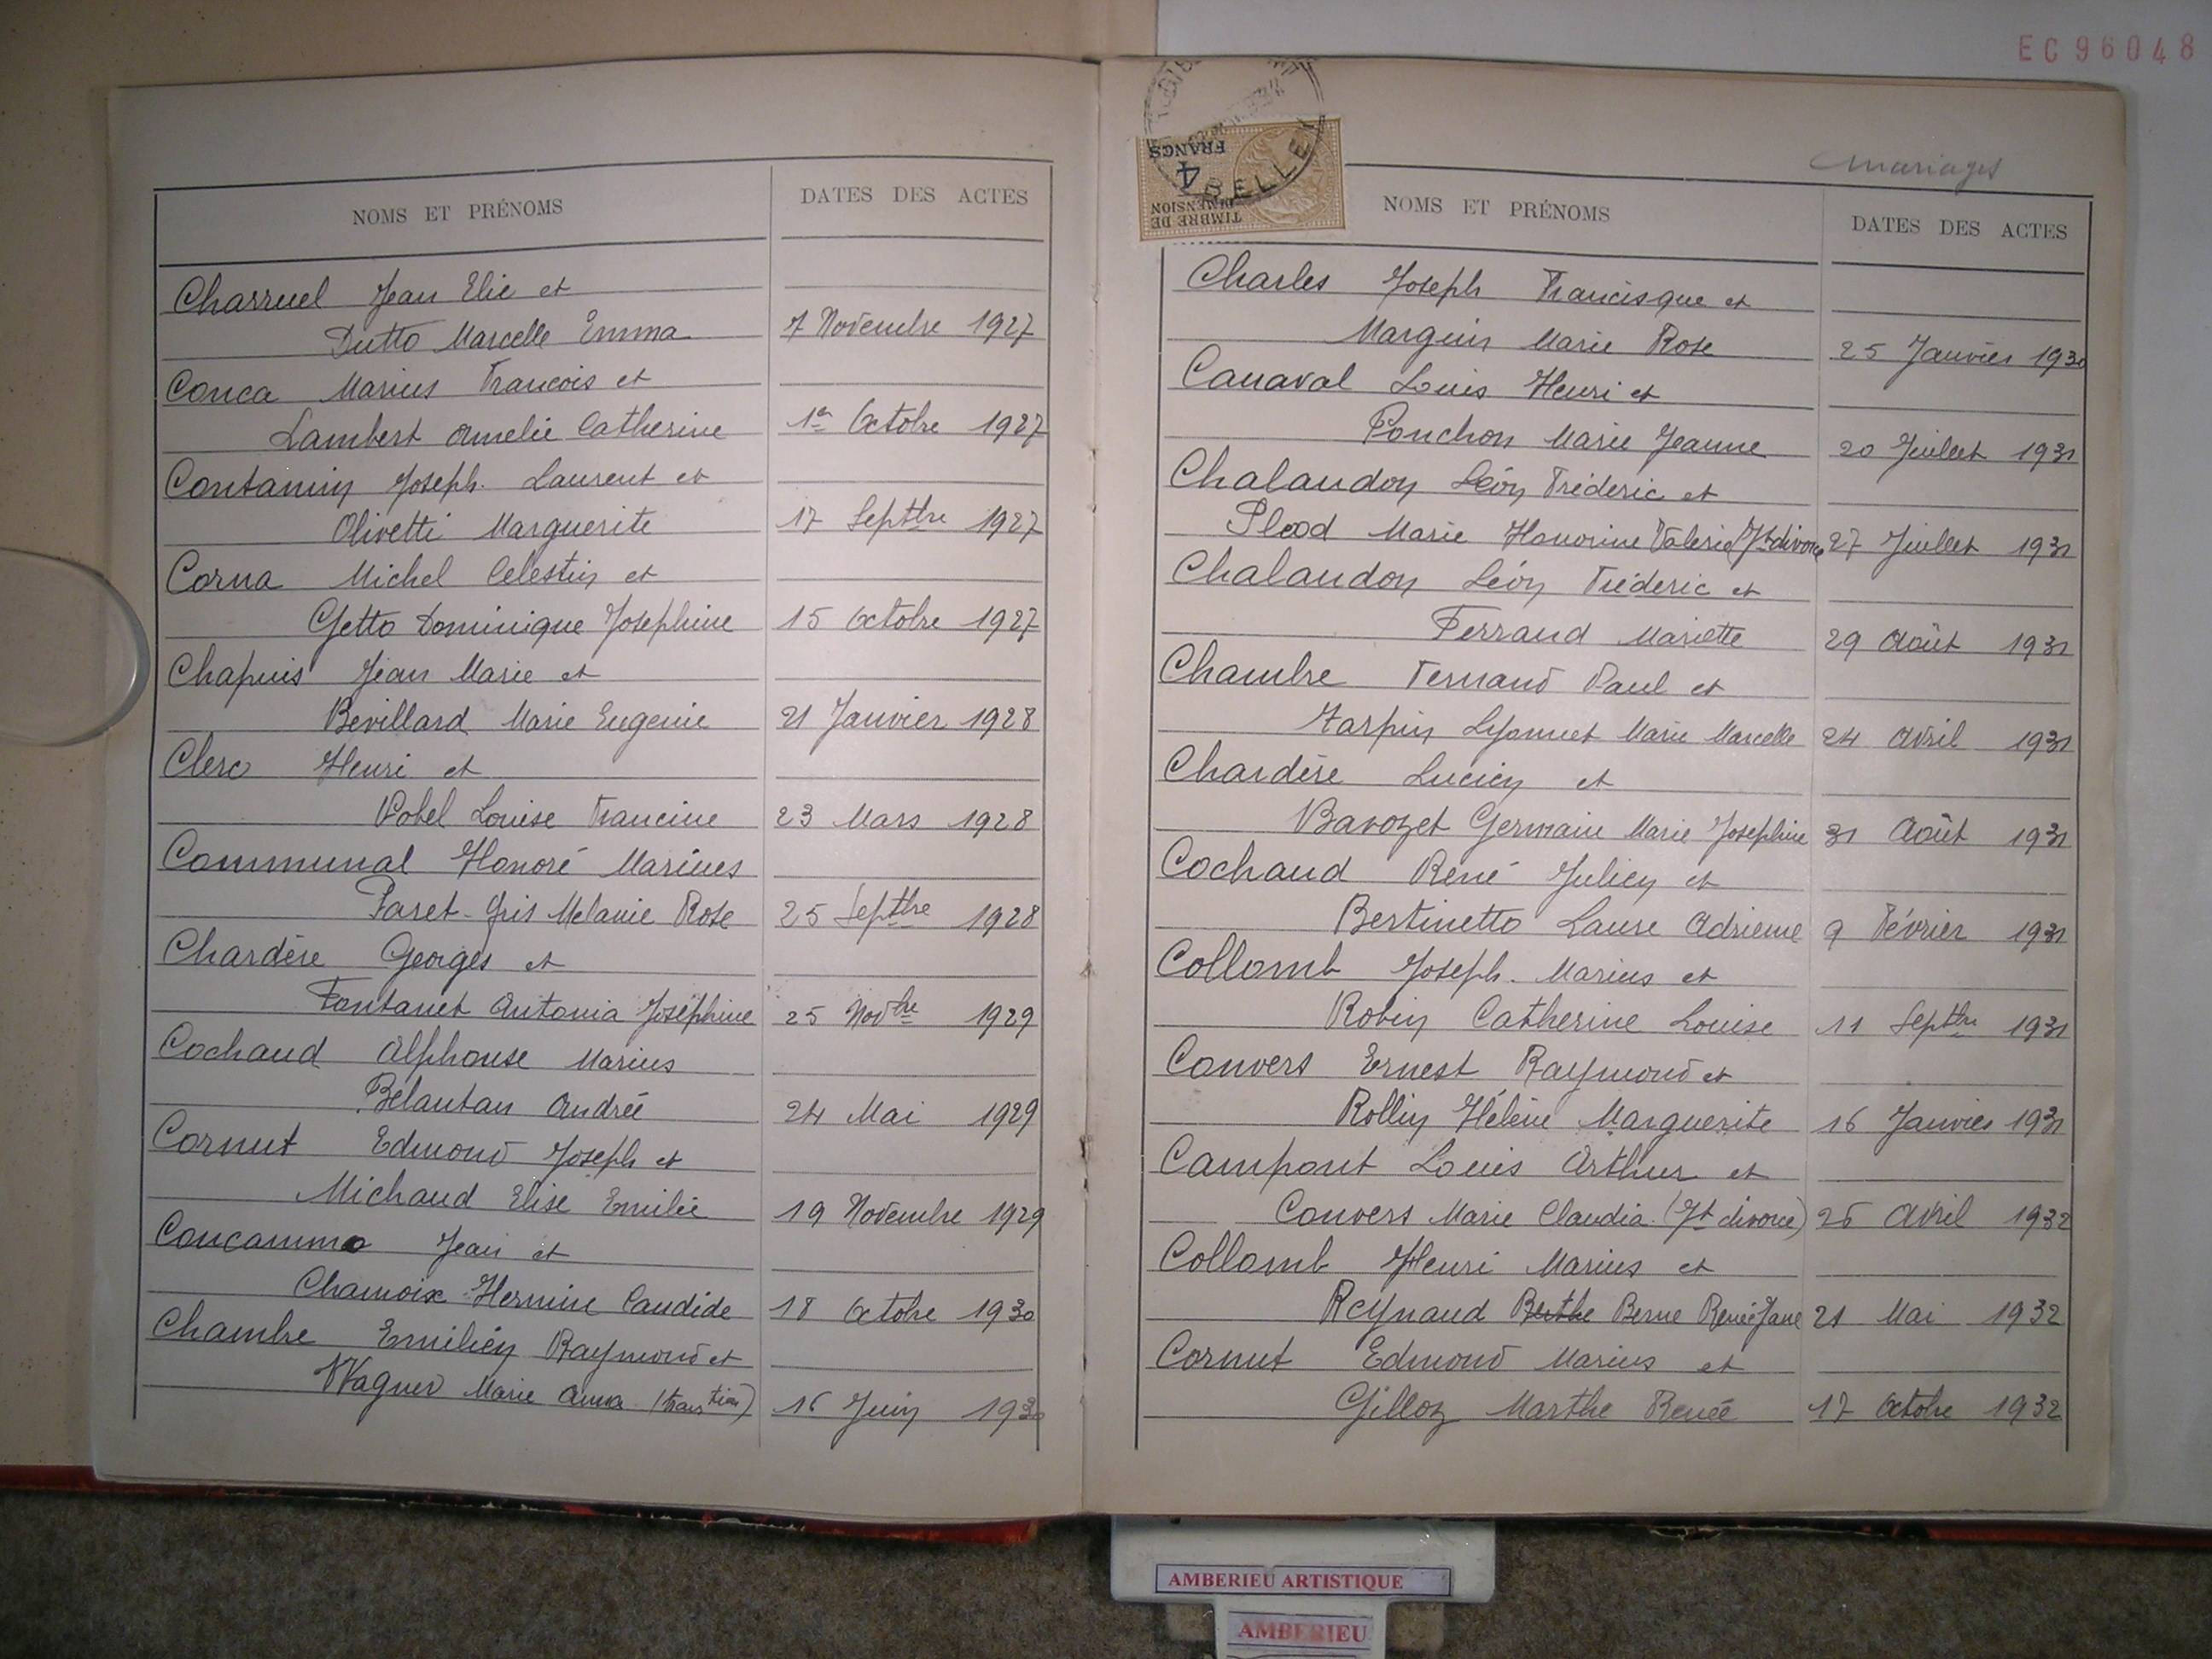 EC96048
NOMS ET PRÉNOMS
DATES DES ACTES
Charruel Jean Elie et
Dutto Marcelle Emma 7 Novembre 1927
Conca Marius Francois et
Lambert Amelie Catherine 1er Octobre 1927
Contamin Joseph Laurent et
Olivetti Marguerite 17 Septbre 1927
Corna Michel Celestin et
Getto Dominique Josephine 15 Octobre 1927
Chapuis Jean Marie et
Bevillard Marie Eugenie 21 Janvier 1928
Clerc Henri et
Pobel Louise Francine 23 Mars 1928
Communal Honoré Marius
Paret-Gris Melanie Rose 25 Septbre 1928
Chardère Georges et
Fontanet Antonia Joséphine 25 Novbre 1929
Cochaud Alphonse Marius
Bélantan Andrée 24 Mai 1929
Cornut Edmond Joseph et
Michaud Elise Emilie 19 Novembre 1929
Concammo Jean et
Chamoix Hermine Candide 18 Octobre 1930
Chambre Emilien Raymond et
Wagner Marie Anna (transtion) 16 Juin 1930
BELLEY
4
FRANCS
TIMBRE DE
DIMENSION
Mariages
NOMS ET PRÉNOMS
DATES DES ACTES
Charles Joseph Francisque et
Marguin Marie Rose 25 Janvier 1930
Canaval Louis Henri et
Ponchon Marie Jeanne 20 Juillet 1931
Chalandon Léon Fréderic et
Marie Honorine Valerie (Jt divorce 27 Juillet 1931
Chalandon Léon Fréderic et
Ferraud Mariette 29 Août 1931
Chambre Fernand Paul et
Tarpin Lyonnet Marie Marcelle 24 Avril 1931
Chardère Lucien et
Bavozet Germaine Marie Josephine 31 Août 1931
Cochaud René Julien et
Bertinetto Laure Adrienne 9 Février 1931
Collomb Joseph Marius et
Robin Catherine Louise 11 Septbre 1931
Convers Ernest Raymond et
Rollin Hélène Marguerite 16 Janvier 1931
Campont Louis Arthur et
Convers Marie Claudia (Jt divorce) 26 Avril 1932
Collomb Henri Marius et
Reynaud Berthe Berne Renée Jane 21 Mai 1932
Cornut Edmond Marius et
Gilloz Marthe Renée 17 Octobre 1932
AMBERIEU ARTISTIQUE
AMBERIEU